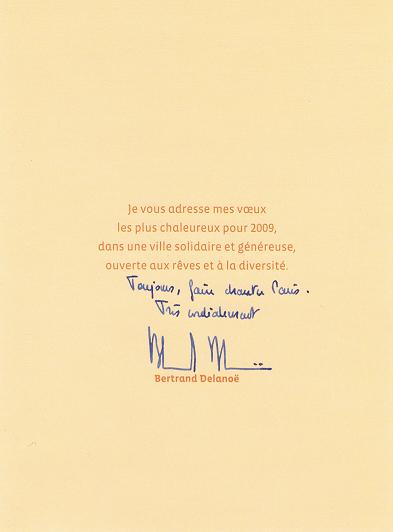 Je vous adresse mes vœux
les plus chaleureux pour 2009,
dans une ville solidaire et généreuse,
ouverte aux rêves et à la diversité.
Toujours, faire chanter Paris.
Très cordialement
Bertrand Delanoë